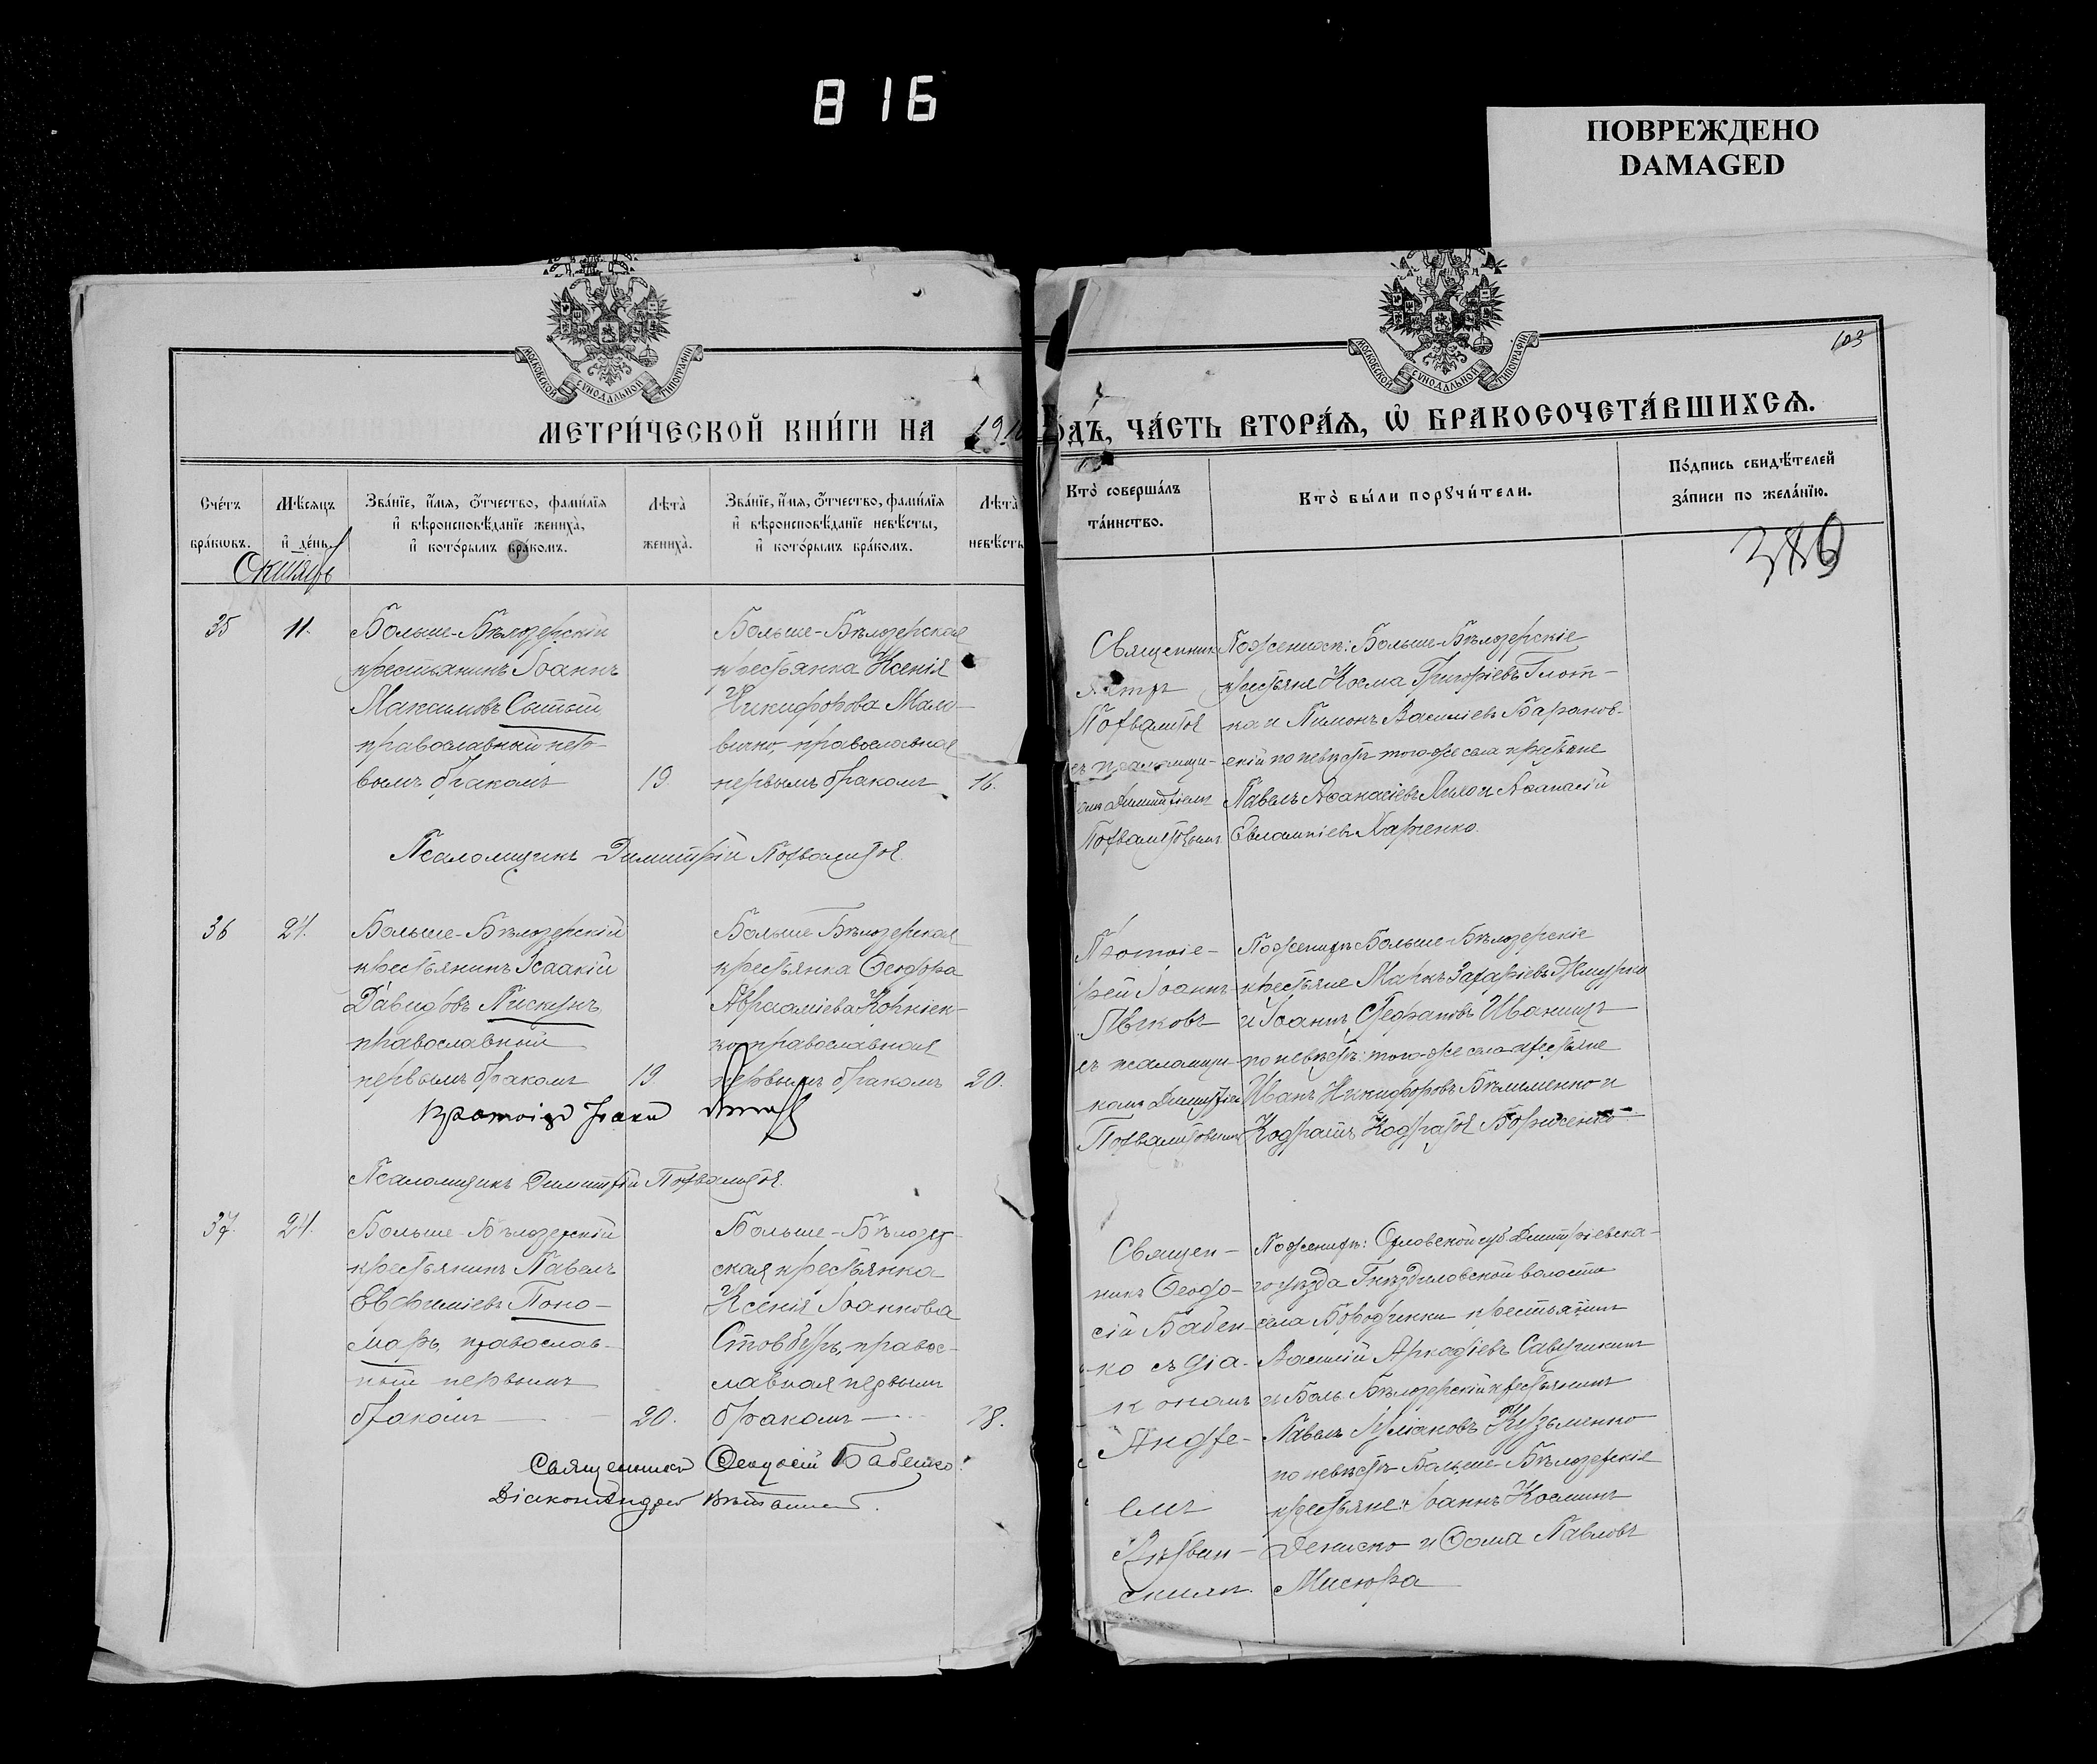 816
ПОВРЕЖДЕНО
DAMAGED
МОСКОВСКОЙ СѴНОДАЛЬНОЙ ТИПОГРАФІИ
МОСКОВСКОЙ СѴНОДАЛЬНОЙ ТИПОГРАФІИ
103
МЕТРИ́ЧЕСКОЙ КНИ́ГИ НА 191
О́ДЪ, ЧА́СТЬ ВТОРА́Ѧ, Ѡ БРАКОСОЧЕТА́ВШИХСѦ.
Сче́тъ бра́кѡвъ.
Мѣ́сяцъ и҆ де́нь.
Зва́нїе, и҆́мя, ѻ҆́тчество, фами́лїя
и҆ вѣроисповѣ́данїе жениха̀,
и҆ кото́рымъ бра́комъ.
Лѣта̀ жениха̀.
Зва́нїе, и҆́мя, ѻ҆́тчество, фами́лїя
и҆ вѣроисповѣ́данїе невѣ́сты,
и҆ кото́рымъ бра́комъ.
Лѣта̀ невѣ́сты
Кто̀ соверша́лъ
та́инство.
Кто̀ бы́ли порꙋчи́тели.
По́дпись свидѣ́телей
за́писи по жела́нїю.
Октябрь
386
35
11.
Больше-Бѣлозерскій
крестьянинъ Іоаннъ
Максимовъ Сытый
православный пер-
вымъ бракомъ
19.
Больше-Бѣлозерская
крестьянка Ксенія
Никифорова Мало-
вичко, православная
первымъ бракомъ
16.
Священник
Петръ
Похвалитовъ
съ псаломщи-
комъ Димитріемъ
Похвалитовымъ
По женихѣ: Больше-Бѣлозерскіе
крестьяне Косма Григоріевъ Глот-
ка и Пименъ Василіевъ Баранов-
скій по невѣстѣ того-же села крестьяне
Павелъ Аѳанасіевъ Лихо и Аѳанасій
Евлампіевъ Харченко.
Псаломщикъ Димитрій Похвалитовъ.
36
21.
Больше-Бѣлозерскій
крестьянинъ Исаакій
Давидовъ Пискунъ
православный
первымъ бракомъ
19.
Больше-Бѣлозерская
крестьянка Ѳеодора
Авраамiева Корніен-
ко православная
первымъ бракомъ
20.
Протоіе-
рей Іоаннъ
съ псаломщи-
комъ Димитріем
Похвалитовымъ
По женихѣ Больше-Бѣлозерскіе
крестьяне Маркъ Захаріевъ
и Іоаннъ Стефановъ Иваница
по невѣстѣ: того-же села крестьяне
Иванъ Никифоровъ Бѣлименко и
Кодратъ Кодратовъ Борисенко.
Протоіерей Іоаннъ
Псаломщикъ Димитрій Похвалитовъ.
37.
24.
Больше-Бѣлозерскій
крестьянинъ Павелъ
Евфиміевъ Поно-
марь, православ-
ный первымъ
бракомъ
20.
Больше-Бѣлозер-
ская крестьянка
Ксенія Іоаннова
Стовбуръ, правос-
лавная первымъ
бракомъ
18.
Священ-
никъ Ѳеодо-
сій Бабен-
ко съ діа-
кономъ
Андре-
емъ
скимъ.
По женихѣ: Орловской губ Дмитріевска-
го уѣзда Гнѣздиловской волости
села Бородинки крестьянинъ
Василій Аркадіевъ Савушкинъ
и Боль Бѣлозерскій крестьянинъ
Павелъ Кузьменко
по невѣстѣ Больше-Бѣлозерскіе
крестьяне: Іоаннъ Косминъ
Дениско и Ѳома Павловъ
Мисюра
Священникъ Ѳеодосій Бабенко.
Діаконъ Андрей